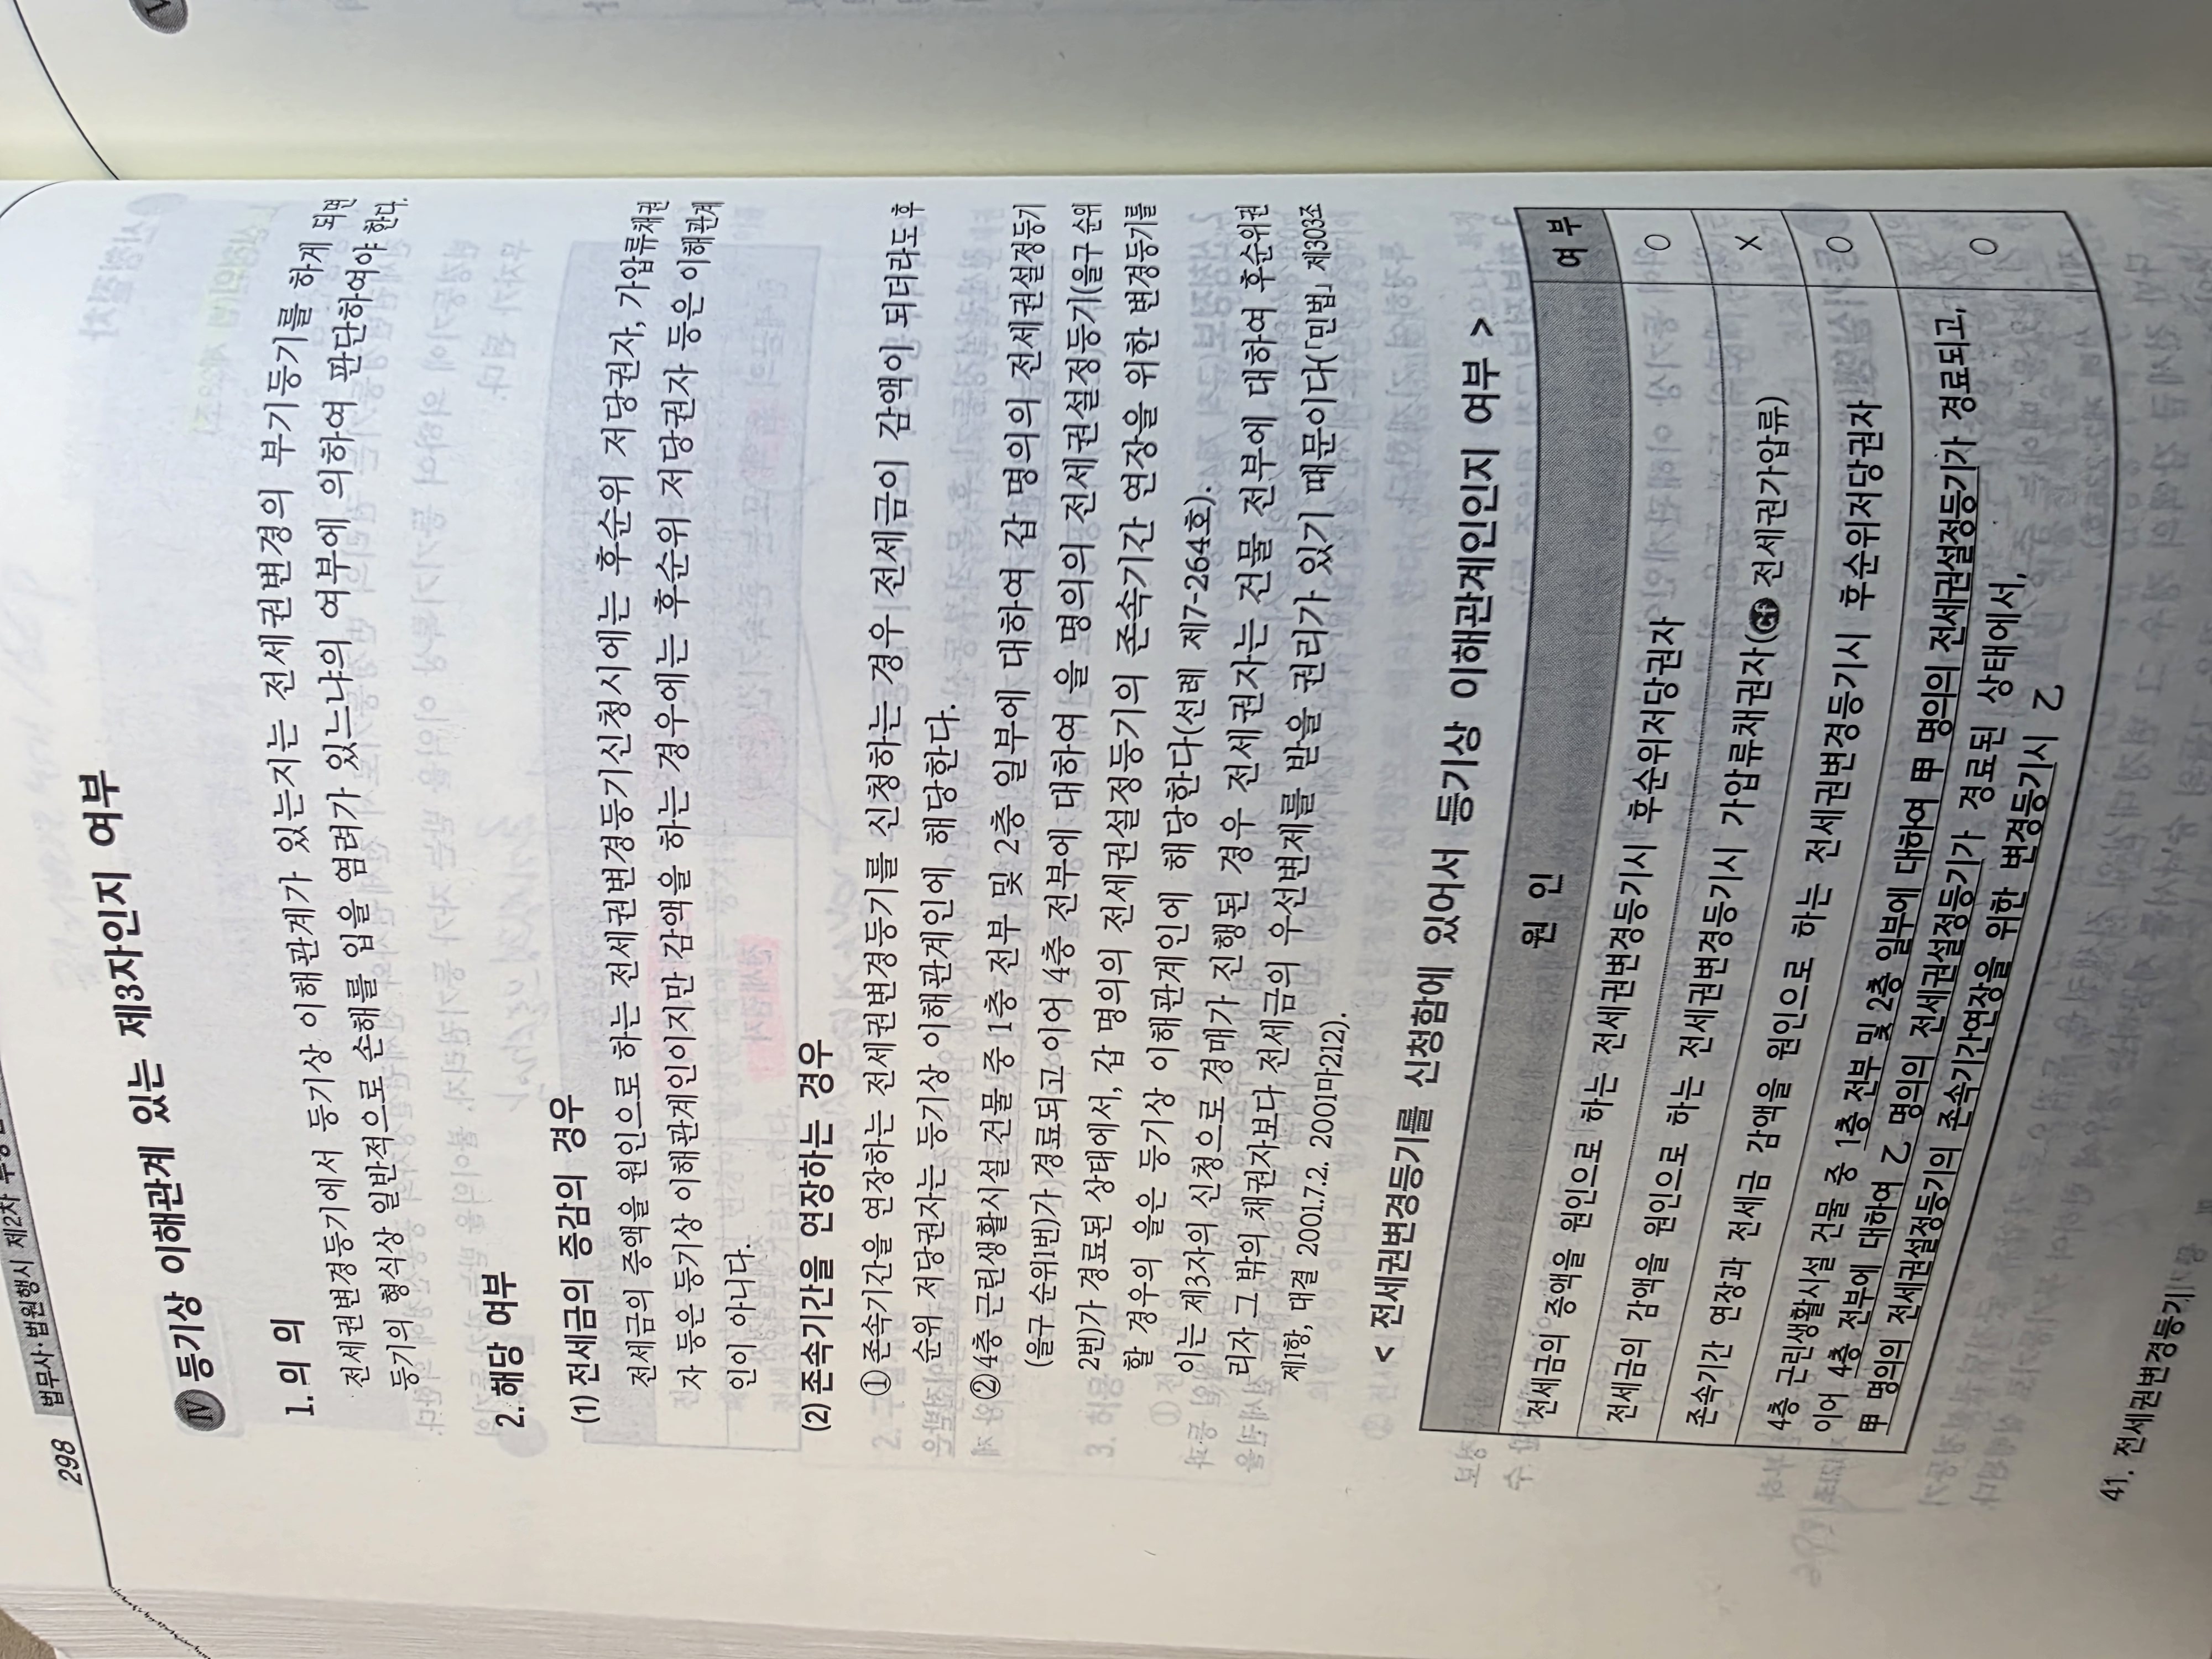 298
법무사·법원행시 제2차
Ⅳ 등기상 이해관계 있는 제3자인지 여부
1. 의 의
전세권변경등기에서 등기상 이해관계가 있는지는 전세권변경의 부기등기를 하게 되면
등기의 형식상 일반적으로 손해를 입을 염려가 있느냐의 여부에 의하여 판단하여야 한다.
2. 해당 여부
(1) 전세금의 증감의 경우
전세금의 증액을 원인으로 하는 전세권변경등기신청시에는 후순위 저당권자, 가압류채권
자 등은 등기상 이해관계인이지만 감액을 하는 경우에는 후순위 저당권자 등은 이해관계
인이 아니다.
(2) 존속기간을 연장하는 경우
① 존속기간을 연장하는 전세권변경등기를 신청하는 경우 전세금이 감액이 되더라도 후
순위 저당권자는 등기상 이해관계인에 해당한다.
② 4층 근린생활시설 건물 중 1층 전부 및 2층 일부에 대하여 갑 명의의 전세권설정등기
(을구 순위1번)가 경료되고 이어 4층 전부에 대하여 을 명의의 전세권설정등기(을구 순위
2번)가 경료된 상태에서, 갑 명의의 전세권설정등기의 존속기간 연장을 위한 변경등기를
할 경우의 을은 등기상 이해관계인에 해당한다(선례 제7-264호).
이는 제3자의 신청으로 경매가 진행된 경우 전세권자는 건물 전부에 대하여 후순위권
리자 그 밖의 채권자보다 전세금의 우선변제를 받을 권리가 있기 때문이다(「민법」 제303조
제1항, 대결 2001.7.2. 2001마212).
< 전세권변경등기를 신청함에 있어서 등기상 이해관계인인지 여부 >
원 인 여 부
전세금의 증액을 원인으로 하는 전세권변경등기시 후순위저당권자 ○
전세금의 감액을 원인으로 하는 전세권변경등기시 가압류채권자(Cf 전세권가압류) ×
존속기간 연장과 전세금 감액을 원인으로 하는 전세권변경등기시 후순위저당권자 ○
4층 근린생활시설 건물 중 1층 전부 및 2층 일부에 대하여 甲 명의의 전세권설정등기가 경료되고,
이어 4층 전부에 대하여 乙 명의의 전세권설정등기가 경료된 상태에서,
甲 명의의 전세권설정등기의 존속기간연장을 위한 변경등기시 乙 ○
41. 전세권변경등기